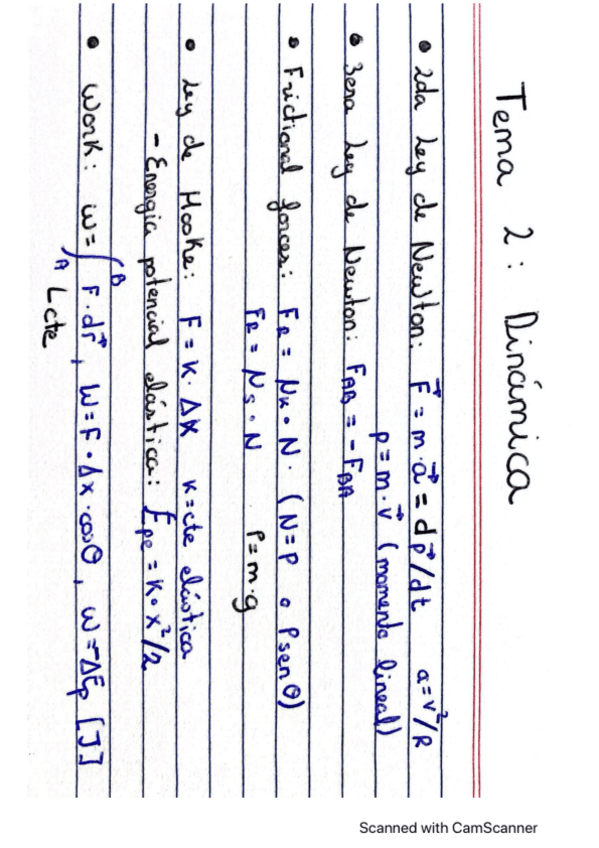 Tema 2: Dinámica
• 2da Ley de Newton: F⃗ = m·a⃗ = dp⃗/dt a=v²/R
p=m·v⃗ (momento lineal)
• 3era Ley de Newton: F_AB = -F_BA
• Frictional forces: F_R = μ_K·N. (N=P o Psenθ)
F_R = μ_S·N P=m·g
• Ley de Hooke: F=K·Δx K=cte elástica
- Energía potencial elástica: E_pe = K·x²/2
• Work: W=∫_A^B F·dr⃗, W=F·Δx·cosθ, W=-ΔEp [J]
L cte
Scanned with CamScanner